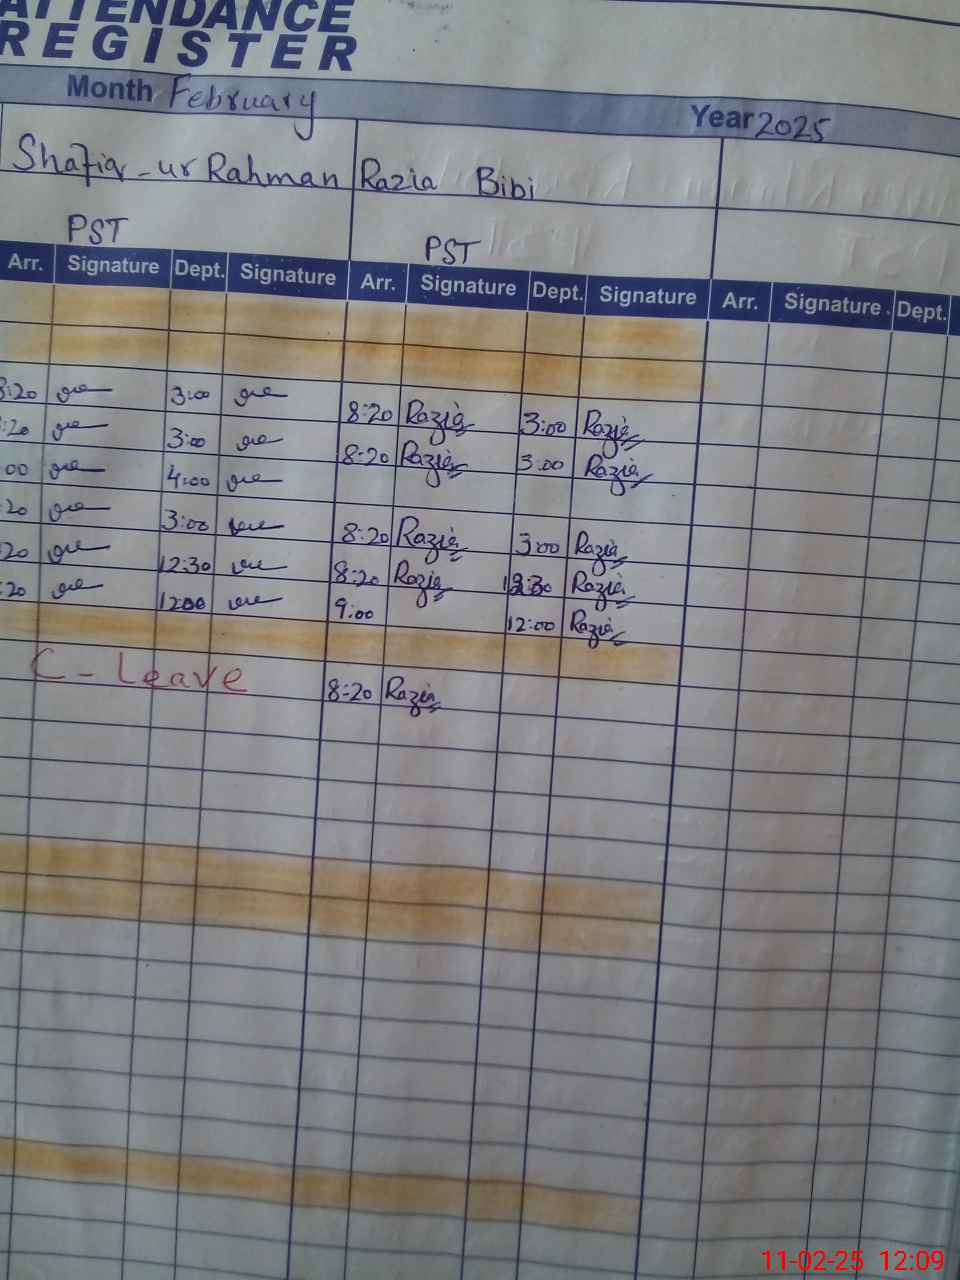 ATTENDANCE
REGISTER
Month February Year 2025
Shafiq-ur Rahman Razia Bibi
PST PST
Arr. Signature Dept. Signature Arr. Signature Dept. Signature Arr. Signature Dept.
8:20 3:00 8:20 Razia 3:00 Razia
:20 3:00 8:20 Razia 3:00 Razia
:00 4:00
:20 3:00 8:20 Razia 3:00 Razia
:20 12:30 8:20 Razia 12:30 Razia
:20 12:00 9:00 12:00 Razia
C - Leave 8:20 Razia
11-02-25 12:09